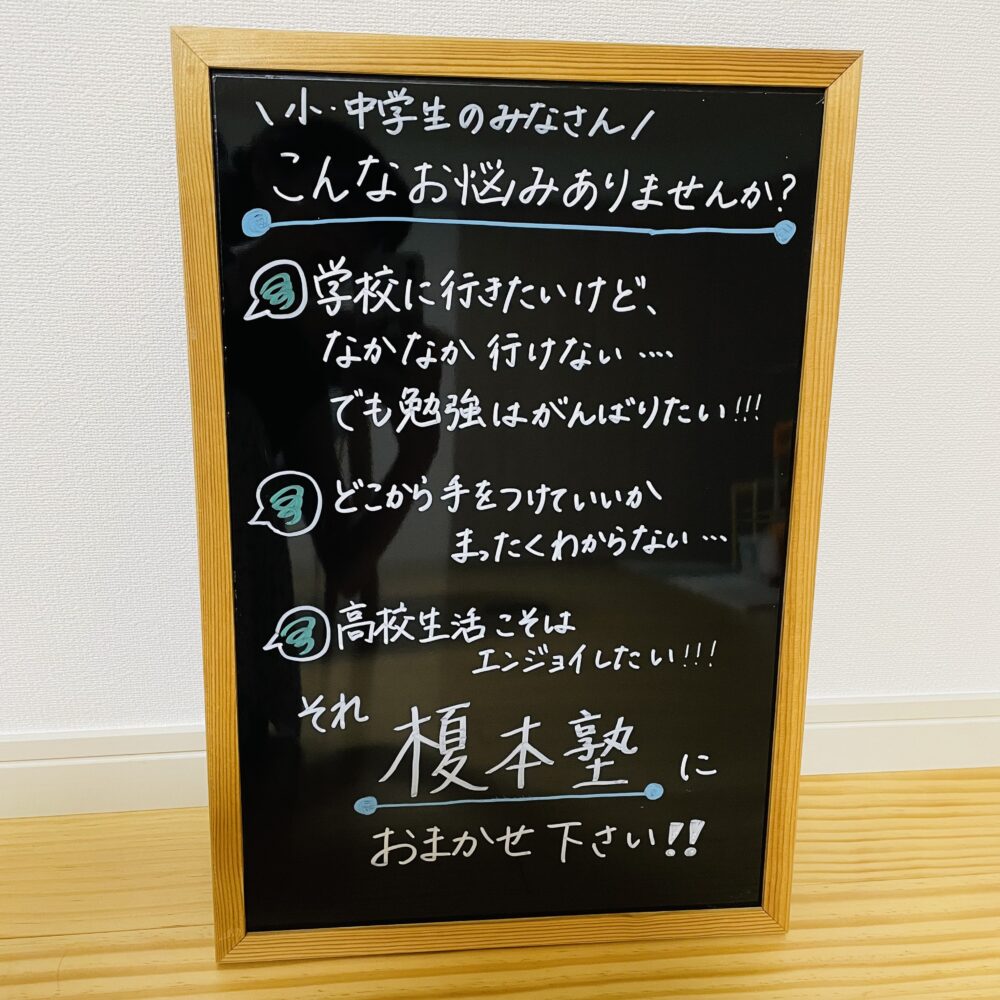 \ 小・中学生のみなさん /
こんなお悩みありませんか?
学校に行きたいけど、
なかなか行けない....
でも勉強はがんばりたい!!!
どこから手をつけていいか
まったくわからない...
高校生活こそは
エンジョイしたい!!!
それ 榎本塾 に
おまかせ下さい!!